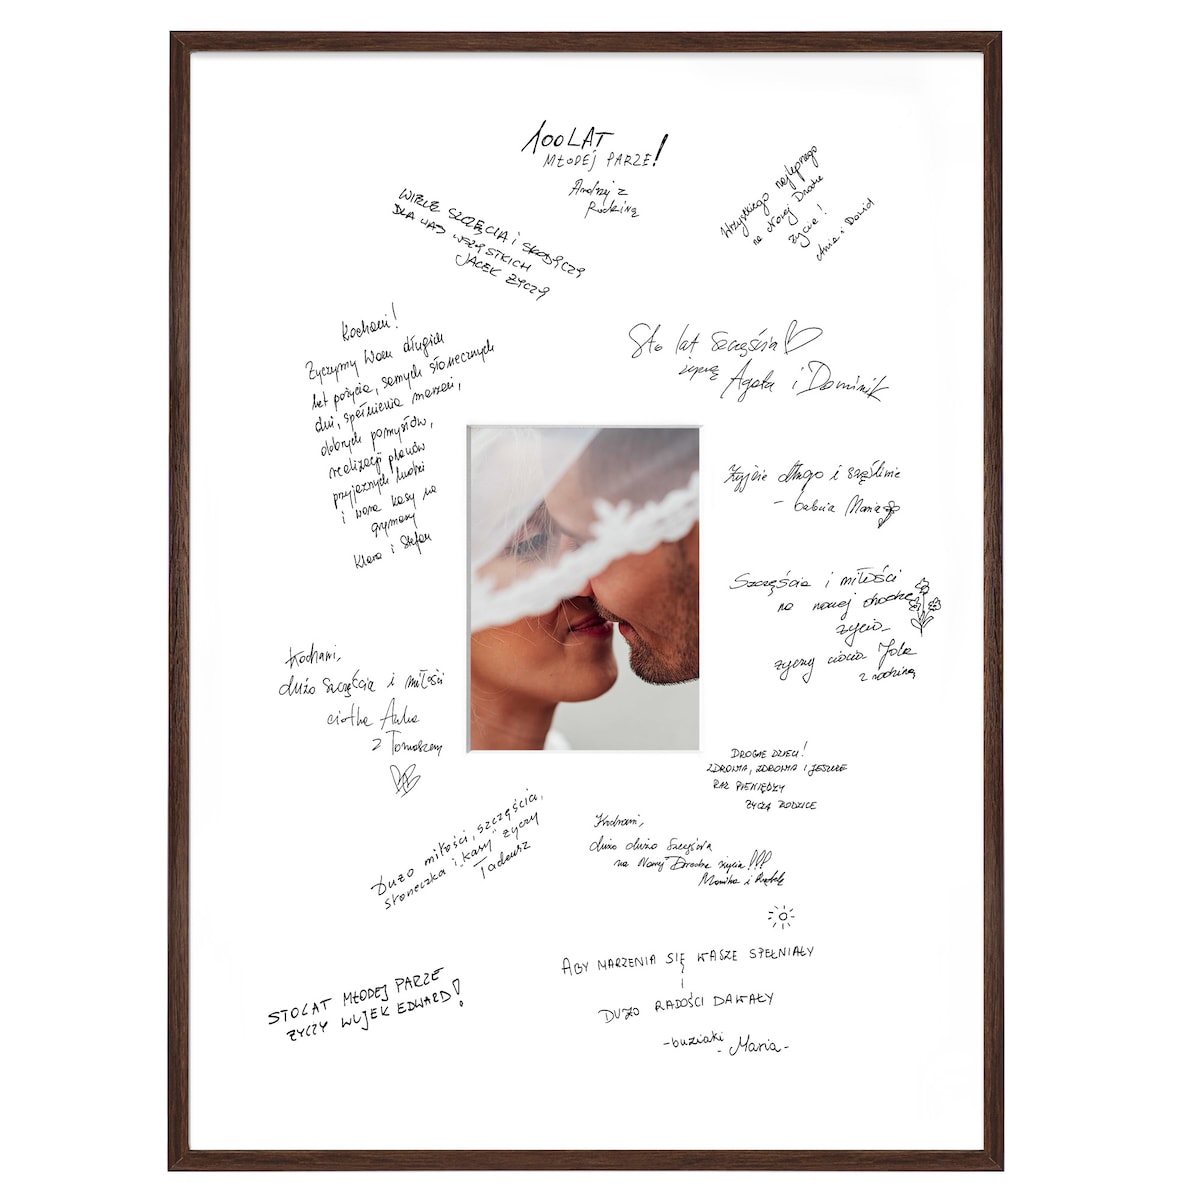 100 LAT
MŁODEJ PARZE!
Andrzej z
Rodziną
WIELE SZCZĘŚCIA I SŁODYCZY
DLA WAS WSZYSTKICH
JACEK ŻYCZY
Wszystkiego najlepszego
na Nowej Drodze
życia!
Ania i Dawid
Kochani!
Życzymy Wam długich
lat pożycia, samych słonecznych
dni, spełnienia marzeń,
dobrych pomysłów,
realizacji planów
przyjaznych ludzi
i wora kasy na
grymasy
Klara i Stefan
Sto lat Szczęścia
życzą Agata i Dominik
Żyjcie długo i szczęśliwie
- babcia Maria
Szczęścia i miłości
na nowej drodze
życia
życzy ciocia Jola
z rodziną
Kochani,
dużo szczęścia i miłości
ciotka Anka
z Tomaszem
DROGIE DZIECI!
ZDROWIA, ZDROWIA I JESZCZE
RAZ PIENIĘDZY
ŻYCZĄ RODZICE
Dużo miłości, szczęścia,
słoneczka i „kasy" życzy
Tadeusz
Kochani,
dużo dużo Szczęścia
na Nowej Drodze życia!!!
Monika i
ABY MARZENIA SIĘ WASZE SPEŁNIAŁY
I
DUŻO RADOŚCI DAWAŁY
-buziaki
- Maria-
STO LAT MŁODEJ PARZE
ŻYCZY WUJEK EDWARD!